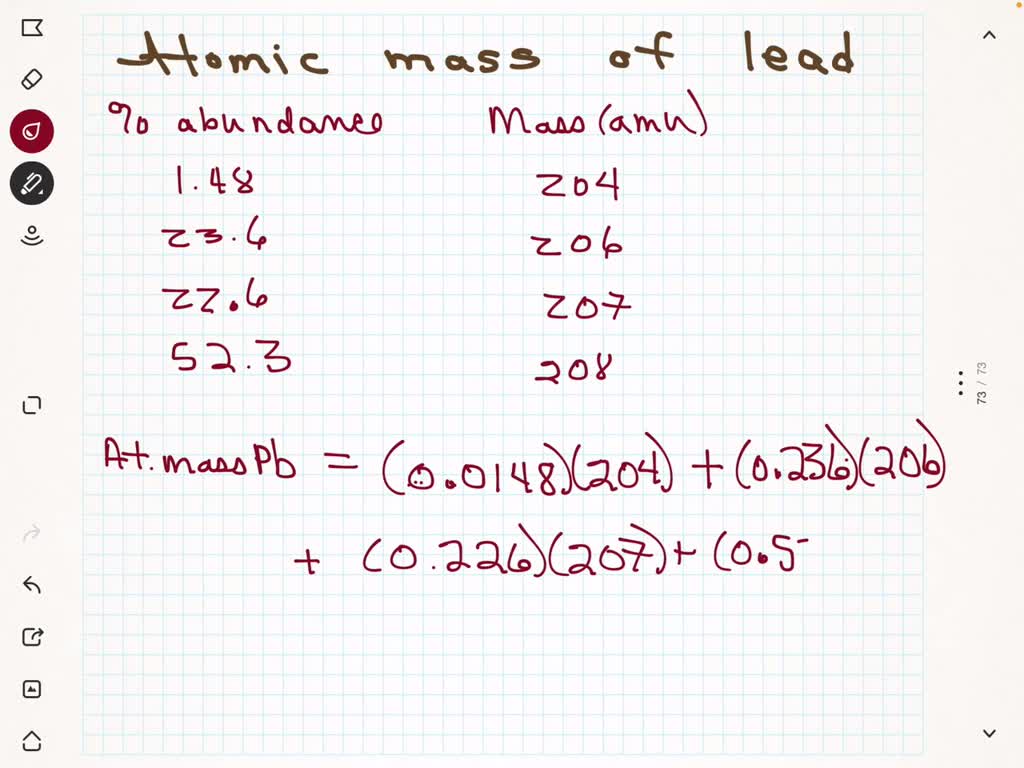 Atomic mass of lead
% abundance Mass (amu)
1.48 204
23.6 206
22.6 207
52.3 208
At. mass Pb = (0.0148)(204) + (0.236)(206)
+ (0.226)(207) + (0.5
73 / 73